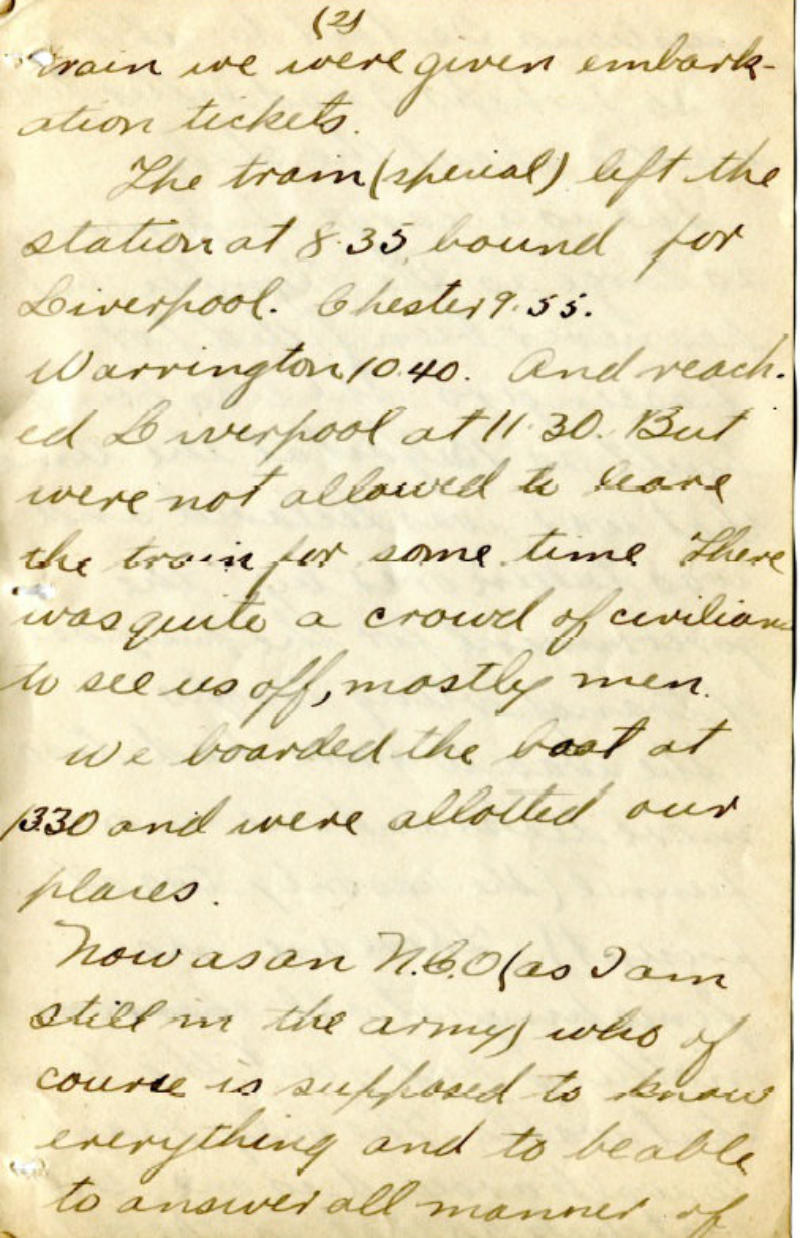 (2)
train we were given embark-
ation tickets.
The train (special) left the
station at 8.35 bound for
Liverpool. Chester 9.55.
Warrington 10.40. And reach-
ed Liverpool at 11.30. But
were not allowed to leave
the train for some time There
was quite a crowd of civilians
to see us off, mostly men.
We boarded the boat at
1330 and were allotted our
places.
Now as an N.C.O (as I am
still in the army) who of
course is supposed to know
everything and to be able
to answer all manner of